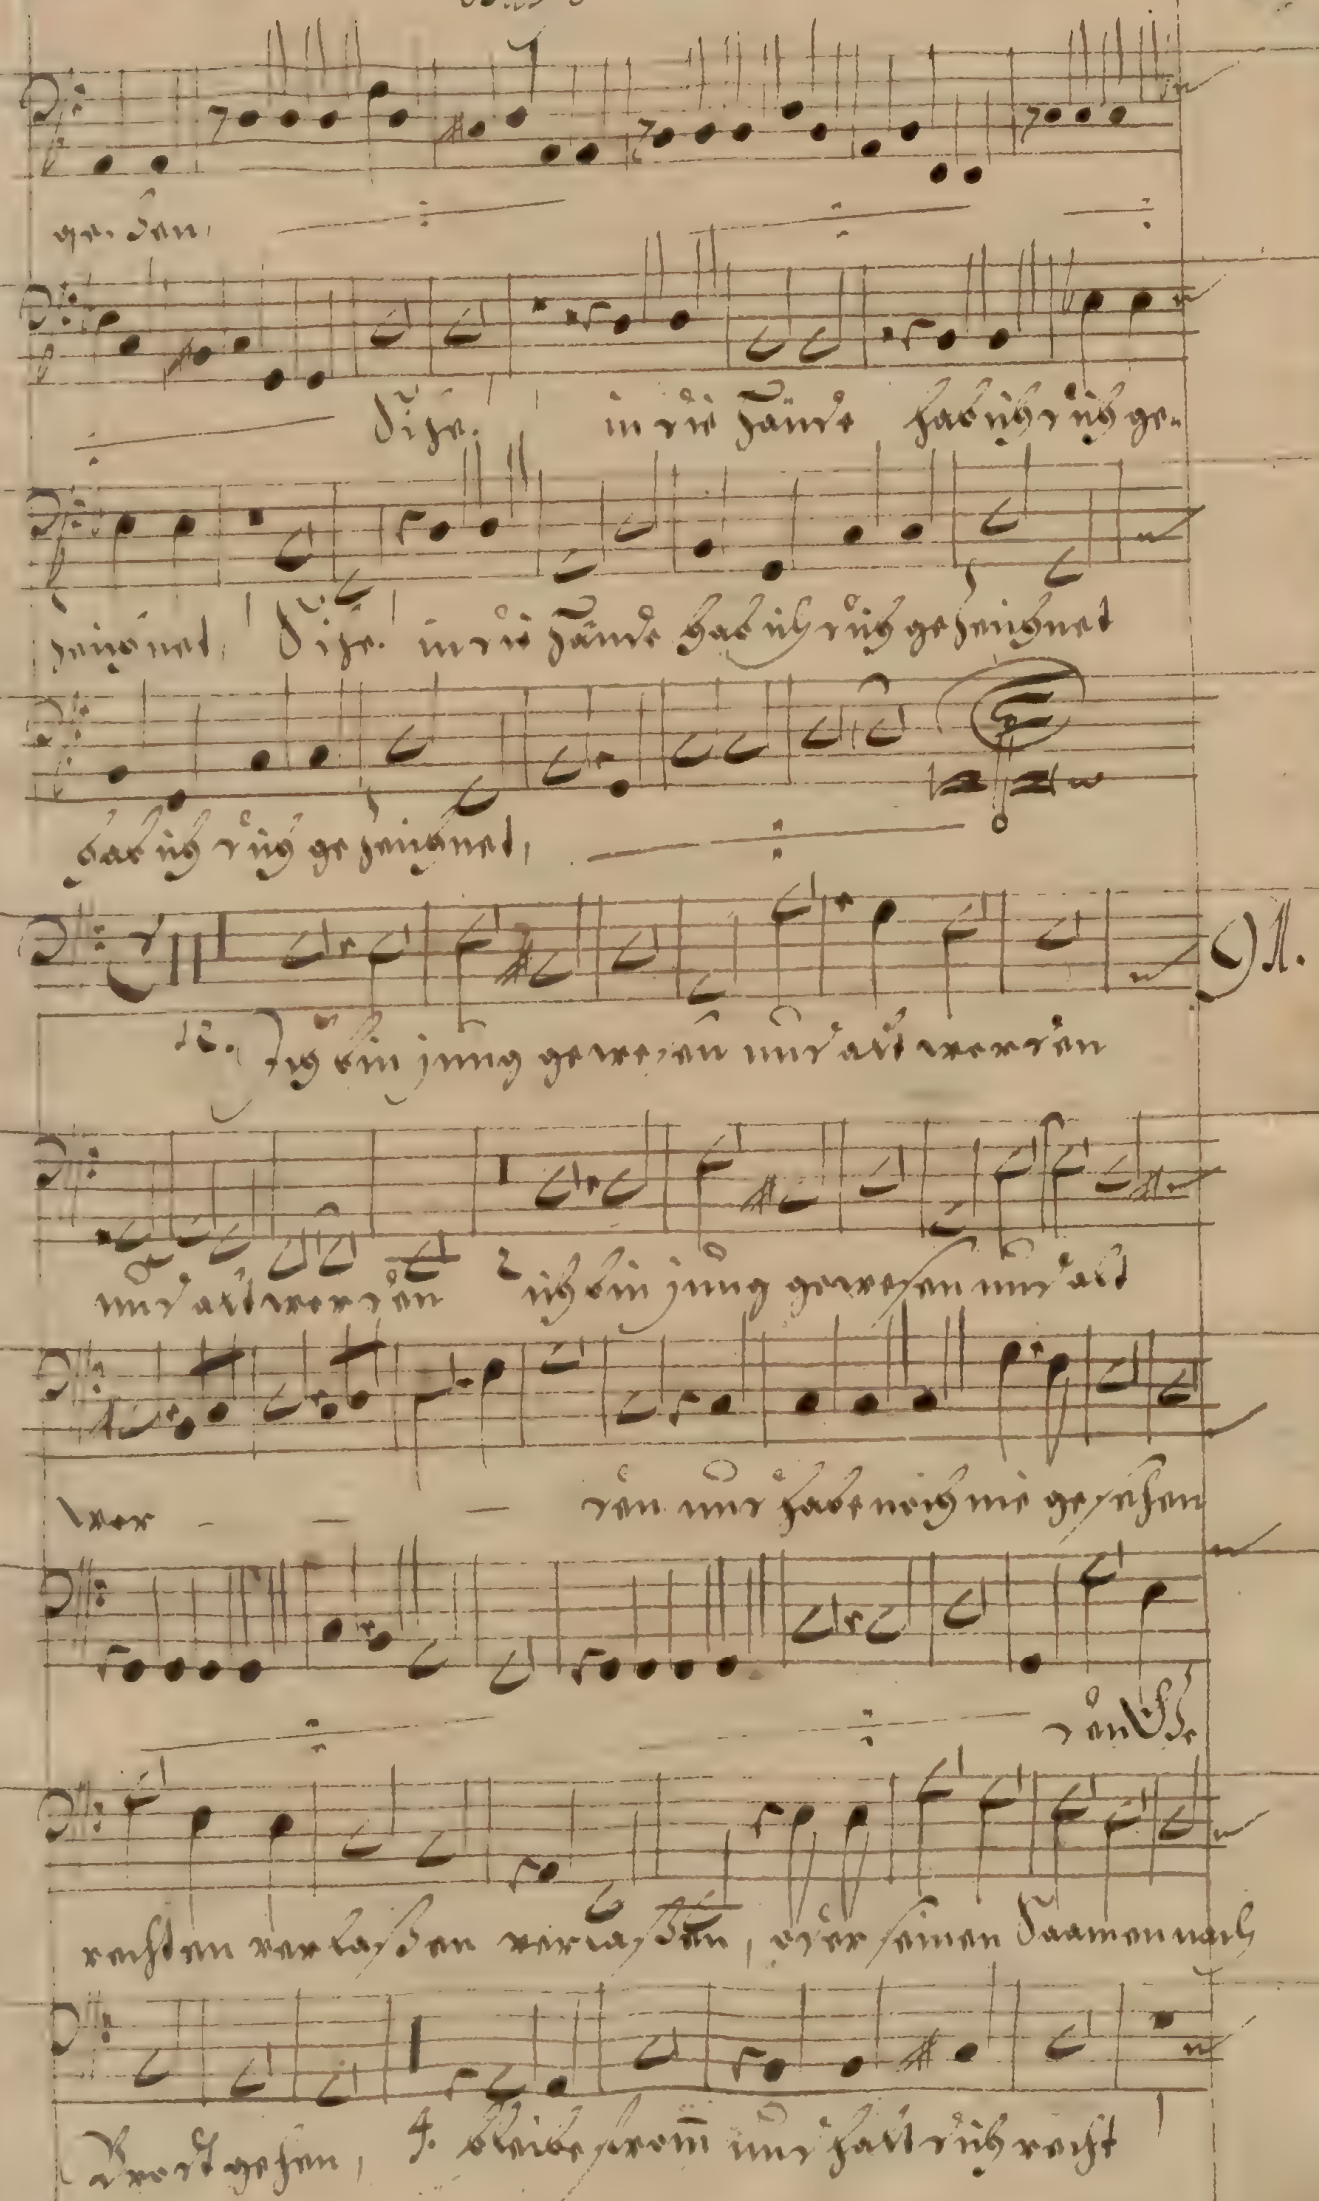 geßen,
Sihe. in die Hände hab ich dich ge-
zeichnet, Sihe. in die Hände hab ich dich gezeichnet
hab ich dich gezeichnet,
91.
12. Ich bin jung gewesen und alt werden
und alt werden 2 ich bin jung gewesen und alt
wer - - - den und habe noch nie gesehen
den Ge
rechten verlaßen verlaßen, oder seinen Saamen nach
Brodt gehen, 4. bleibe from̄ und halt dich recht